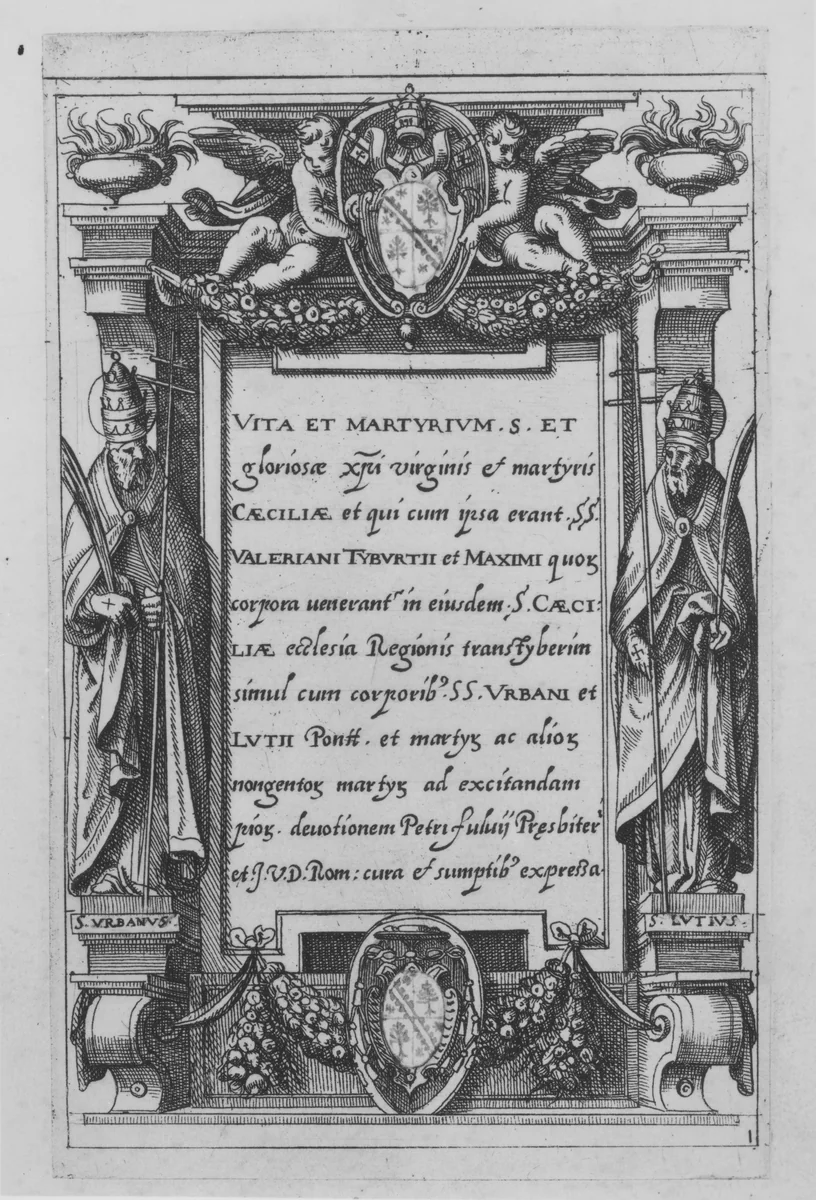 VITA ET MARTYRIVM. S. ET
gloriosæ xp̄i virginis et martyris
CÆCILIÆ et qui cum ipsa erant. SS.
VALERIANI TYBVRTII et MAXIMI quoꝝ
corpora uenerantʳ in eiusdem. S. CÆCI:
LIÆ ecclesia Regionis transtyberim
simul cum corporibꝰ. SS. VRBANI et
LVTII Pontt. et martyꝝ ac alioꝝ
nongentoꝝ martyꝝ ad excitandam
pioꝝ. deuotionem Petri fuluij Pręsbiterˡ
et J.V.D. Rom: cura et sumptibꝰ expressa.
S. VRBANVS.
S. LVTIVS.
1